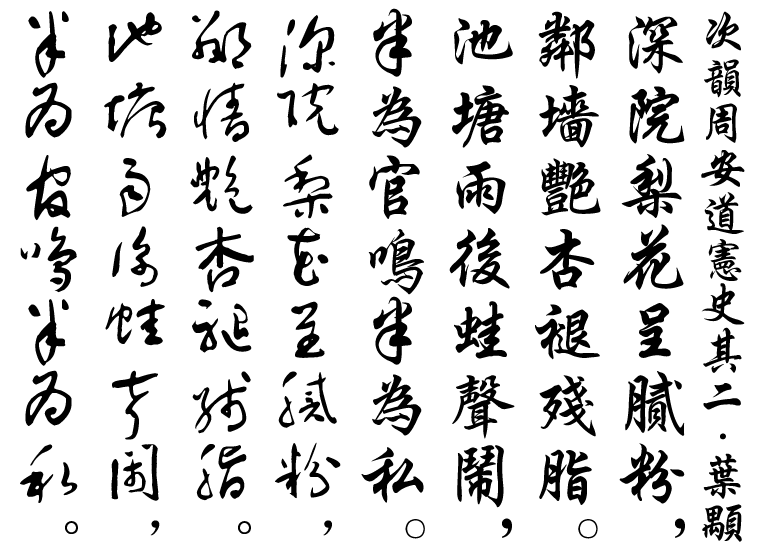 次韻周安道憲史其二．葉顒
深院梨花呈膩粉，
鄰墻艷杏褪殘脂。
池塘雨後蛙聲鬧，
半為官鳴半為私。
深院梨花呈膩粉，
鄰墻艷杏褪殘脂。
池塘雨後蛙聲鬧，
半為官鳴半為私。